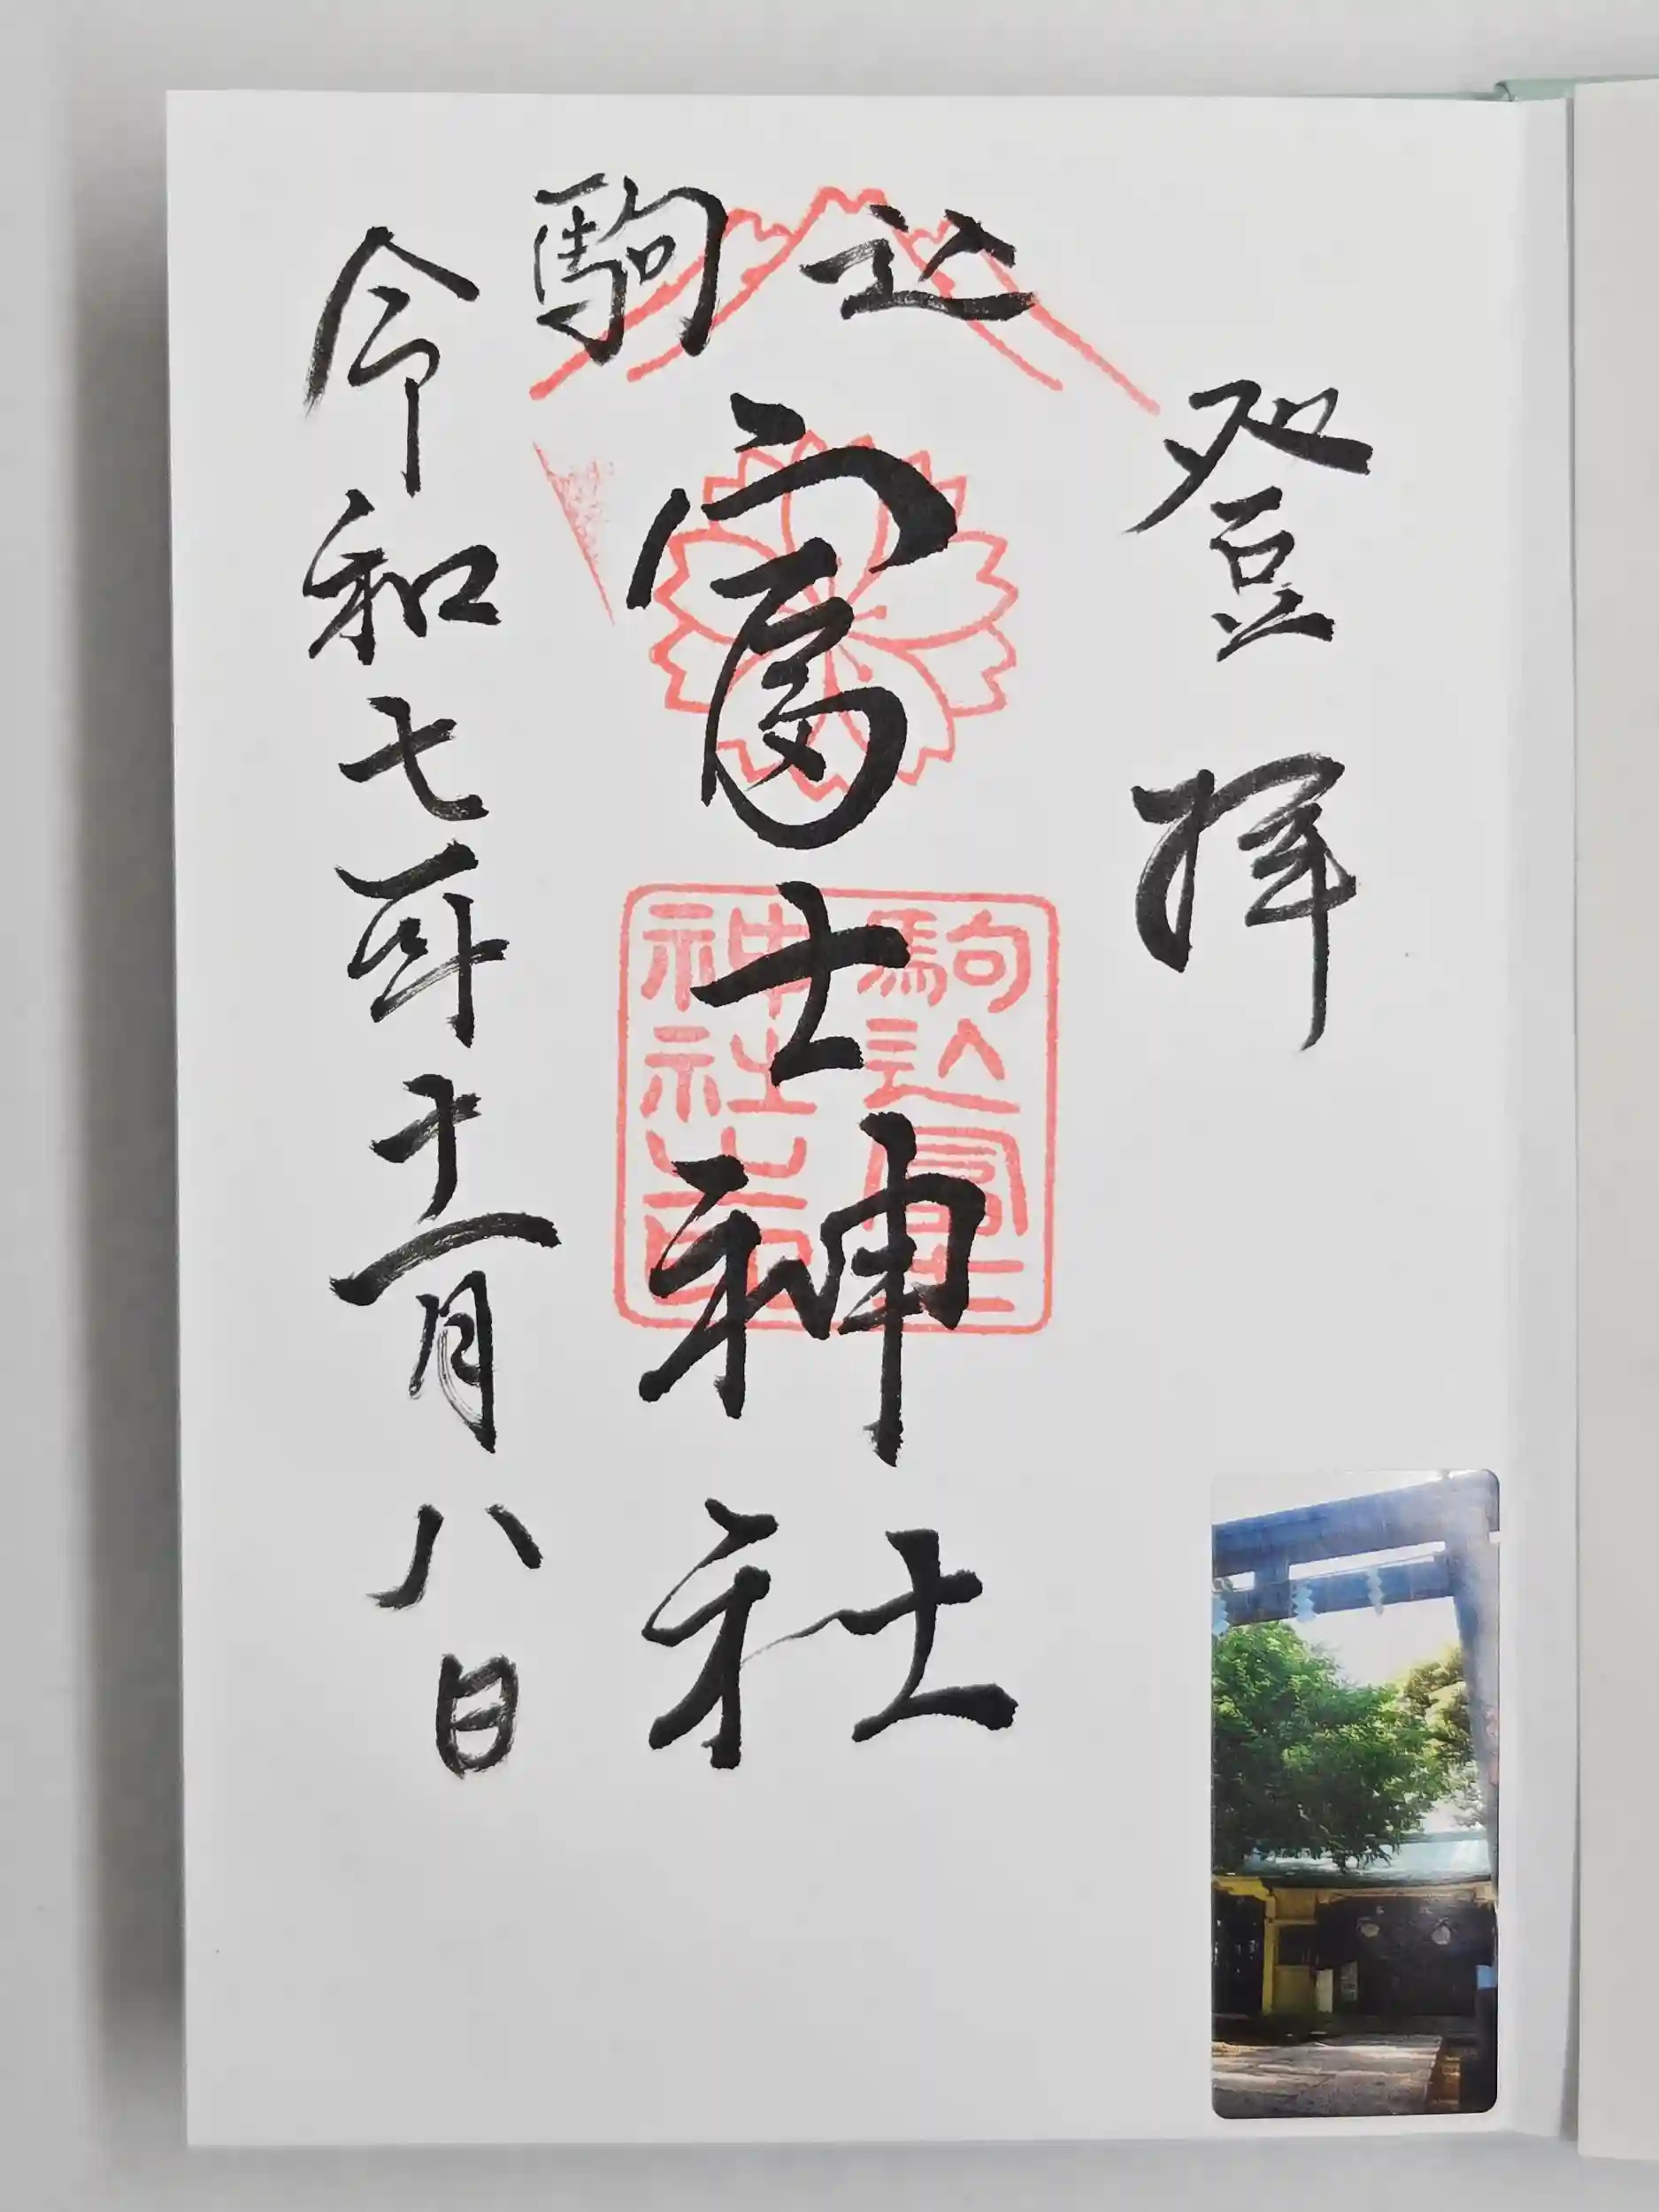 登拝
駒込
富士神社
令和七年十一月八日
駒込冨士
神社